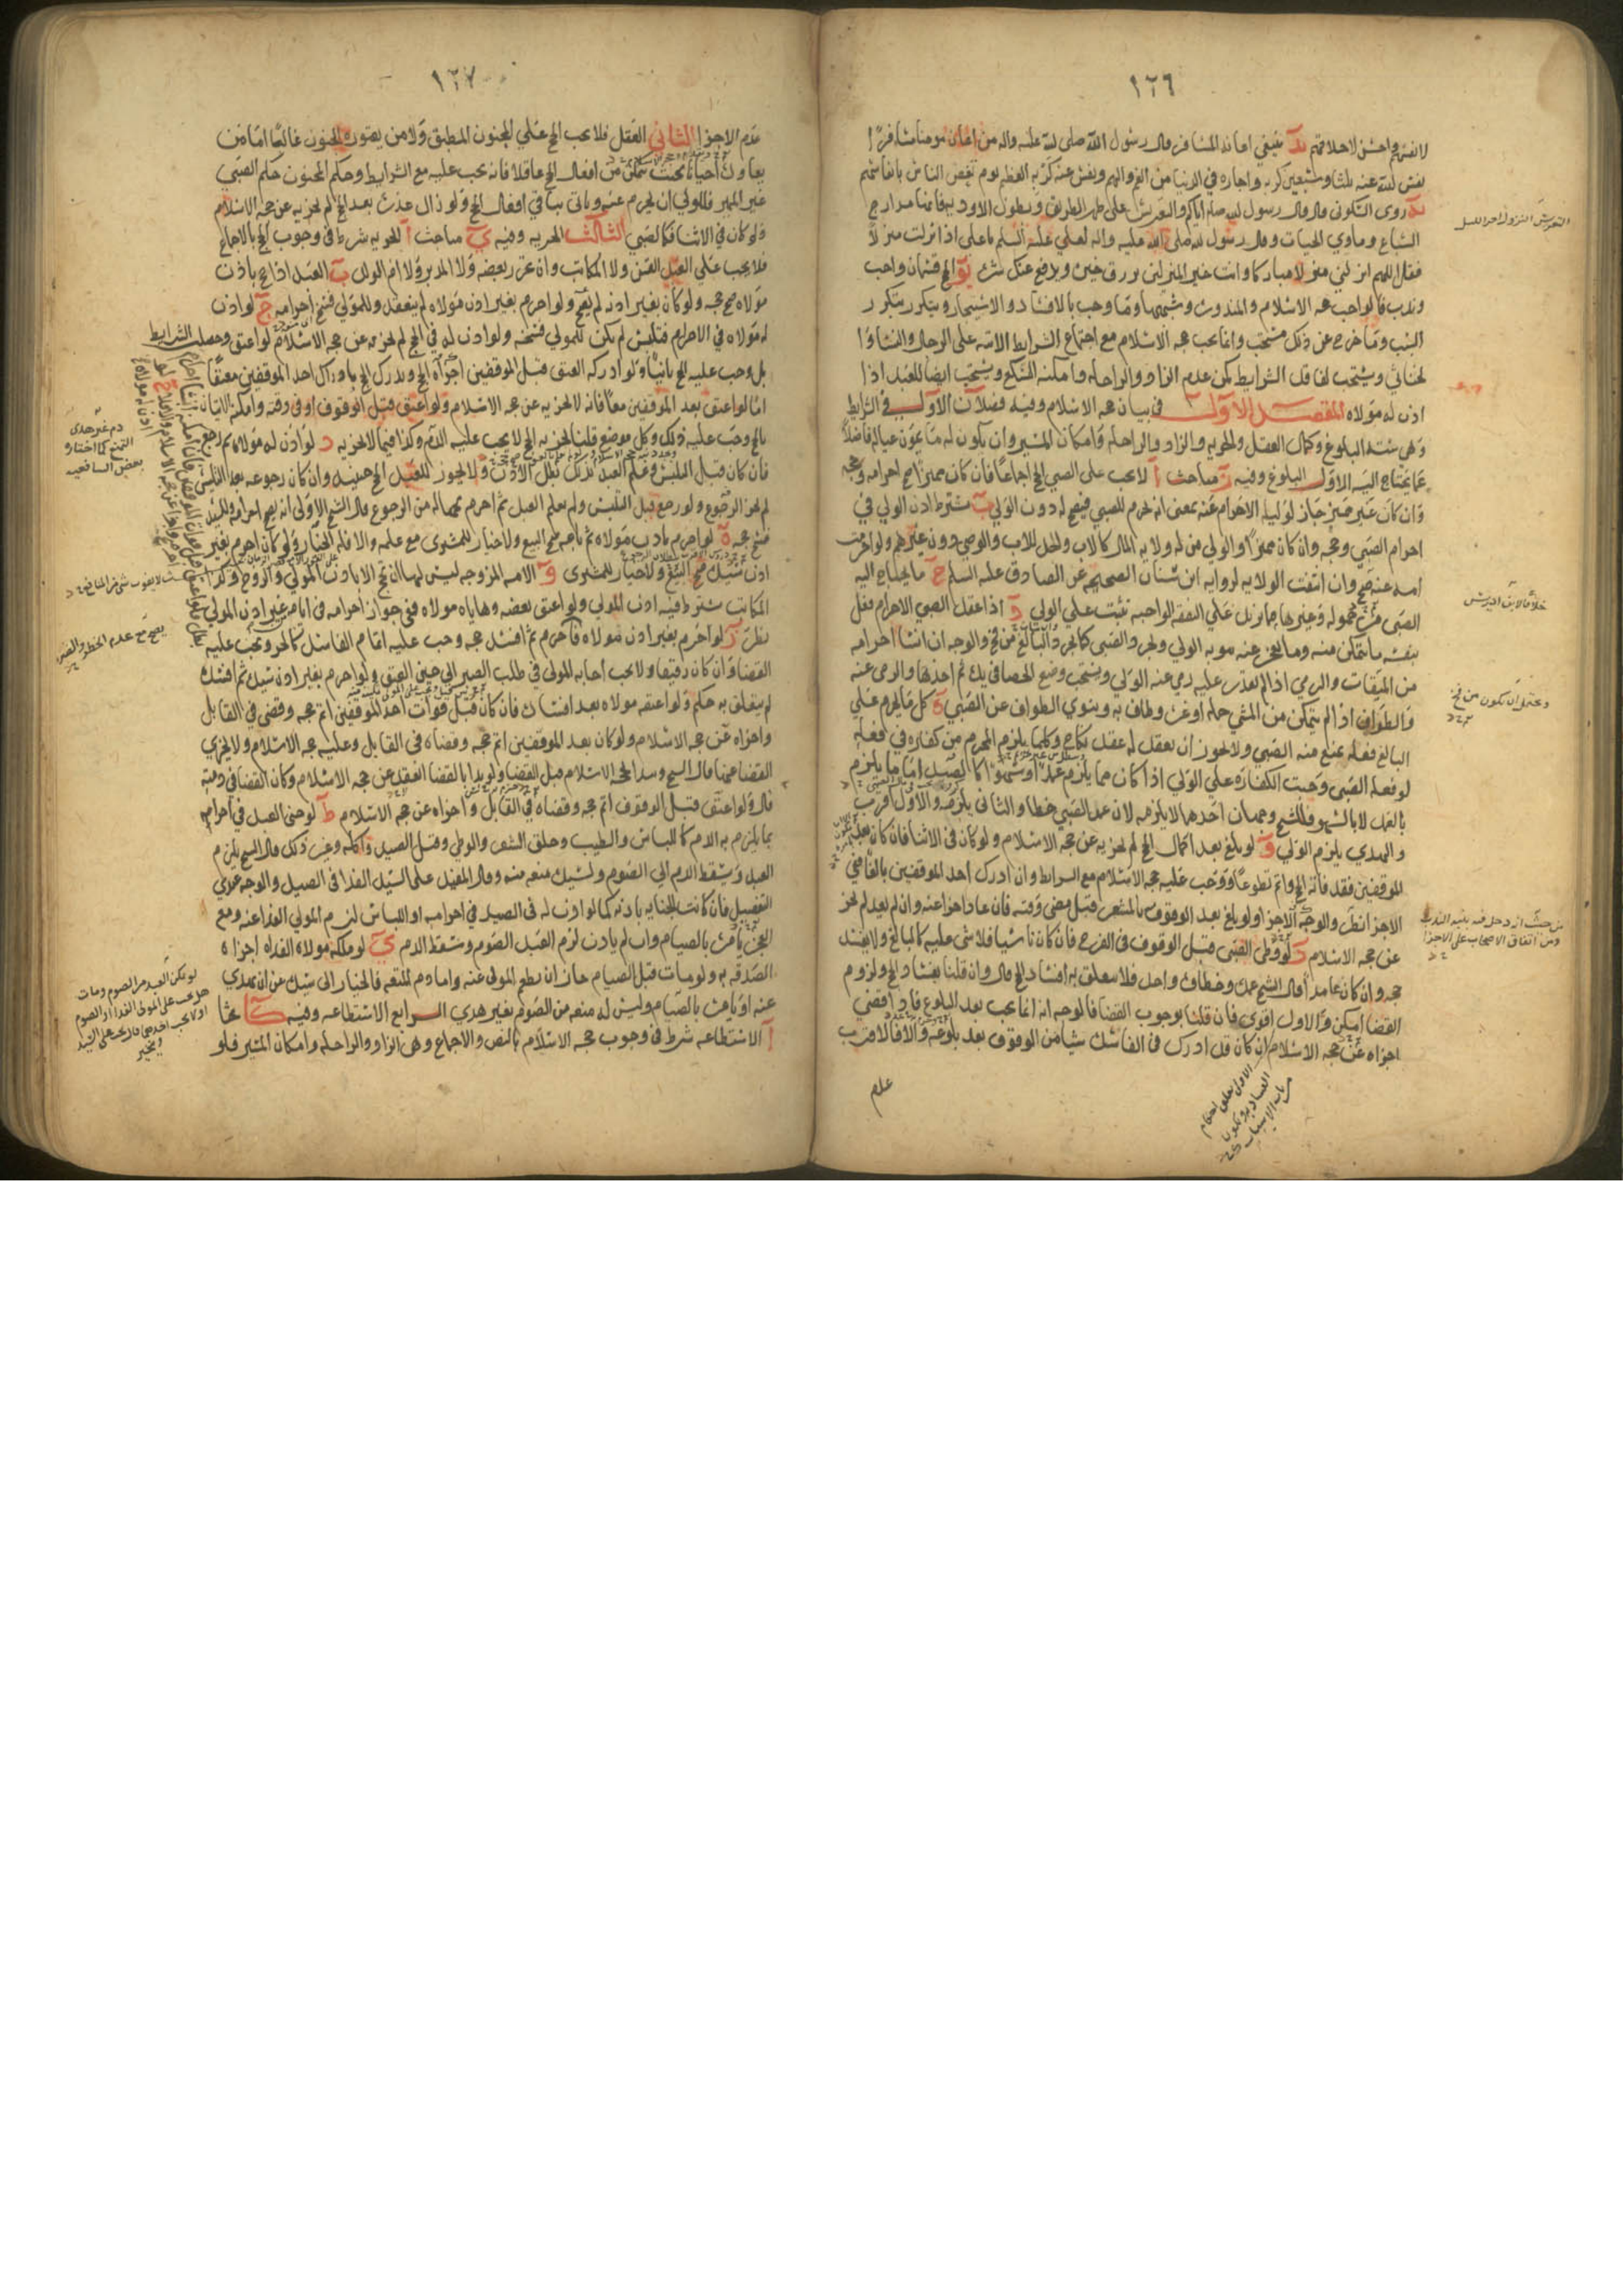 ١٢٦
لانفسهم واحسن لاخلاقهم يد ينبغي اعانه المسافر قال رسول الله صلى الله عليه واله من اعان مومنا مسافرا
نفس الله عنه ثلثا وسبعين كربه واجاره في الدنيا من الغم والهم ونفس عنه كربه العظيم يوم يغص الناس بانفاسهم
يه روى السكوني قال قال رسول الله صلى اياكم والتعريس على ظهر الطريق وبطون الاوديه فانها مدارج
السباع وماوي الحيات وقال رسول الله صلى الله عليه واله لعلي عليه السلم يا علي اذا نزلت منزلا
فقل اللهم انزلني منزلا مباركا وانت خير المنزلين ترزق خيره ويدفع عنك شره يو الحج قسمان واجب
وندب فالواجب حجه الاسلام والمنذور وشبههما وما وجب بالافساد والاستيجار ويتكرر بتكرر
السبب وما خرج عن ذلك مستحب وانما يجب حجه الاسلام مع اجتماع الشرايط الاتيه على الرجال والنساء
لخناثي ويستحب لفاقد الشرايط كمن عدم الزاد والراحله وامكنه التسكع ويستحب ايضا للعبد اذا
اذن له مولاه المقصد الاول في بيان حجه الاسلام وفيه فصلان الاول في الشرايط
وهي سته البلوغ وكمال العقل والحريه والزاد والراحله وامكان المسير وان يكون له ما يمون عياله فاضلا
عما يحتاج اليه الاول البلوغ وفيه ز مباحث ا لا يجب على الصبي الحج اجماعا فان كان مميزا صح احرامه وحجه
وان كان غير مميز جاز لوليه الاحرام عنه بمعنى انه يحرم للصبي فيصح له دون الولي ب يشترط اذن الولي في
احرام الصبي وحجه وان كان مميزا والولي من له ولايه المال كالاب والجد للاب والوصي دون غيرهم ولو احرمت
امه عنه صح وان انتفت الولايه لروايه ابن سنان الصحيحه عن الصادق عليه السلم ج ما يحتاج اليه
الصبي من محموله وغيرها مما يزيد على النفقه الواجبه تثبت على الولي د اذا عقل الصبي الاحرام فعل
بنفسه ما يتمكن منه وما يعجز عنه ينوبه الولي ويجرد الصبي كما يجرد البالغ من فخ والوجه ان انشا احرامه
من الميقات والرمي اذا لم يقدر عليه رمي عنه الولي ويستحب وضع الحصا في يده ثم اخذها والرمي عنه
والطواف اذا لم يتمكن من المشي حمله او غيره وطاف به وينوي الطواف عن الصبي ه كل ما يحرم على
البالغ فعله يمنع منه الصبي ولا يجوز ان يعقد له عقد نكاح وكلما يلزم المحرم من كفاره في فعله
لو فعله الصبي وجبت الكفاره على الولي اذا كان مما يلزم عمدا وسهوا كالصيد اما ما يلزم
بالعمد لا بالسهو فللشيخ وجهان احدهما لا يلزمه لان عمد الصبي خطا والثاني يلزمه والاول اقرب
والهدي يلزم الولي و لو بلغ بعد اكمال الحج لم يجزيه عن حجه الاسلام ولو كان في الاثنا فان كان بعد
الموقفين فقد فاته الحج واتم تطوعا ووجب عليه حجه الاسلام مع الشرايط وان ادرك احد الموقفين بالغا ففي
الاجزا نظر والوجه الاجزا ولو بلغ بعد الوقوف بالمشعر قبل مضي وقته فان عاد اجزا عنه وان لم يعد لم يجز
عن حجه الاسلام ز لو وطئ الصبي قبل الوقوف في الفرج فان كان ناسيا فلا شي عليه كالبالغ ولا يفسد
حجه وان كان عامدا قال الشيخ عمده وخطاه واحد فلا يتعلق به افساد الحج قال وان قلنا يفسد الحج ولزوم
القضا امكن والاول اقوى فان قلنا بوجوب القضا فالوجه انه انما يجب بعد البلوغ فاذا قضي
اجزاه عن حجه الاسلام ان كان قد ادرك في الفاسد شيا من الوقوف بعد بلوغه والا فالاقرب
عدم
التعريس النزول اخر الليل
خلافا لابن ادريس
ويحتمل ان يكون من فخ
١٢٧
عدم الاجزا الثاني العقل فلا يجب الحج على المجنون المطبق ولا من يعتوره الجنون غالبا اما من
يعاوده احيانا بحيث يتمكن من افعال الحج عاقلا فانه يجب عليه مع الشرايط وحكم المجنون حكم الصبي
غير المميز فللولي ان يحرم عنه وياتي بباقي افعال الحج ولو زال عذره بعد الحج لم يجزيه عن حجه الاسلام
ولو كان في الاثنا فكالصبي الثالث الحريه وفيه ي مباحث ا الحريه شرط في وجوب الحج بالاجماع
فلا يجب على العبد القن ولا المكاتب وان تحرر بعضه ولا المدبر ولا ام الولد ب العبد اذا حج باذن
مولاه صح حجه ولو كان بغير اذنه لم يصح ولو احرم بغير اذن مولاه لم ينعقد وللمولي فسخ احرامه ج لو اذن
له مولاه في الاحرام فتلبس لم يكن للمولي فسخه ولو اذن له في الحج لم يجزه عن حجه الاسلام لو اعتق وحصلت الشرايط
بل وجب عليه الحج ثانيا ولو ادركه العتق قبل الموقفين اجزاه الحج ويدرك الحج بادراك احد الموقفين معتقا
اما لو اعتق بعد الموقفين معا فانه لا يجزيه عن حجه الاسلام ولو اعتق قبل الوقوف او في وقته وامكنه الاتيان
بالحج وجب عليه ذلك وكل موضع قلنا يجزيه الحج لا يجب عليه الدم وكذا فيما لا يجزيه د لو اذن له مولاه ثم رجع
فان كان قبل التلبس وعلم العبد بذلك بطل الاذن ولا يجوز للعبد الحج حينئذ وان كان رجوعه بعد التلبس
لم يجز الرجوع ولو رجع قبل التلبس ولم يعلم العبد ثم احرم
فسخ حجه ه لو احرم باذن مولاه ثم باعه صح البيع ولا خيار للمشتري مع علمه والا فله الخيار ولو كان احرم بغير
اذن سيده صح البيع ولا خيار للمشتري و الامه المزوجه ليس لها ان تحج الا باذن المولي والزوج وكذا
المكاتب يشترط فيه اذن المولي ولو اعتق بعضه وهاياه مولاه ففي جواز احرامه في ايامه بغير اذن المولي
نظر ز لو احرم بغير اذن مولاه فاحرم ثم افسد حجه وجب عليه اتمام الفاسد كالحر ويجب عليه
القضا وان كان رقيقا ولا يجب اجابه المولي في طلب الصبر الى حين العتق ولو احرم بغير اذن سيده ثم افسده
لم يتعلق به حكم ولو اعتقه مولاه بعد افساده فان كان قبل فوات احد الموقفين اتم حجه وقضى في القابل
واجزاه عن حجه الاسلام ولو كان بعد الموقفين اتم حجه وقضاه في القابل وعليه حجه الاسلام ولا يجزي
القضا عنها قال الشيخ ويبدا بحجه الاسلام قبل القضا ولو بدا بالقضا انعقد عن حجه الاسلام وكان القضا في ذمته
قال ولو اعتق قبل الوقوف اتم حجه وقضاه في القابل واجزاه عن حجه الاسلام ط لو جنى العبد في احرامه
بما يلزم به الدم كاللباس والطيب وحلق الشعر والوطي وقتل الصيد واكله وغير ذلك قال الشيخ يلزم
العبد ويسقط الدم الى الصوم ولسيده منعه منه وقال المفيد على السيد الفدا في الصيد والوجه عندي
التفصيل فان كانت الجنايه باذنه كما لو اذن له في الصيد في احرامه او اللباس لزم المولي الفدا عنه ومع
العجز يامره بالصيام وان لم ياذن لزم العبد الصوم وسقط الدم ي لو ملكه مولاه الفدا اجزاه
الصدقه به ولو مات قبل الصيام جاز ان يطعم المولى عنه واما دم المتعه فالخيار الى سيده عن ان يهدي
عنه او يامره بالصيام وليس له منعه من الصوم بغير هدي الرابع الاستطاعه وفيه كا بحثا
ا الاستطاعه شرط في وجوب حجه الاسلام بالنص والاجماع وهي الزاد والراحله وامكان المسير فلو
دم غير هدي
التمتع كما اختاره
بعض الشافعيه